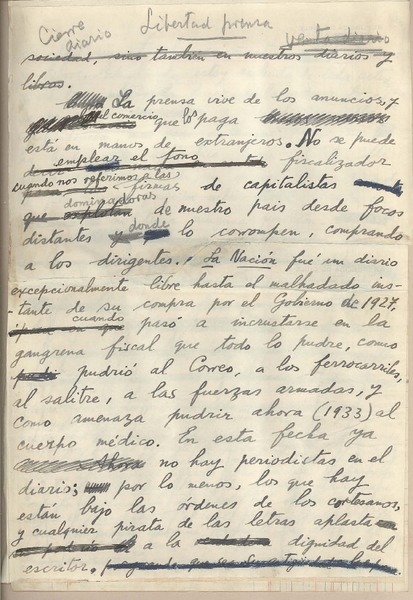 Cierre diario
Libertad prensa
venta diario
sociedad, sino también en nuestros diarios y
libros.
La prensa vive de los anuncios, y
el comercio que los paga
está en manos de extranjeros. No se puede
emplear el tono fiscalizador
cuando nos referimos a las
firmas de capitalistas
dominadoras
que explotan de nuestro pais desde focos
distantes y donde lo corrompen, comprando
a los dirigentes. La Nación fué un diario
excepcionalmente libre hasta el malhadado ins-
tante de su compra por el Gobierno de 1927,
cuando pasó a incrustarse en la
gangrena fiscal que todo lo pudre, como
pudrió al Correo, a los ferrocarriles,
al salitre, a las fuerzas armadas, y
como amenaza pudrir ahora (1933) al
cuerpo médico. En esta fecha ya
Ahora no hay periodistas en el
diario; por lo menos, los que hay
están bajo las órdenes de los cortesanos,
y cualquier pirata de las letras aplasta
a la dignidad del
escritor.